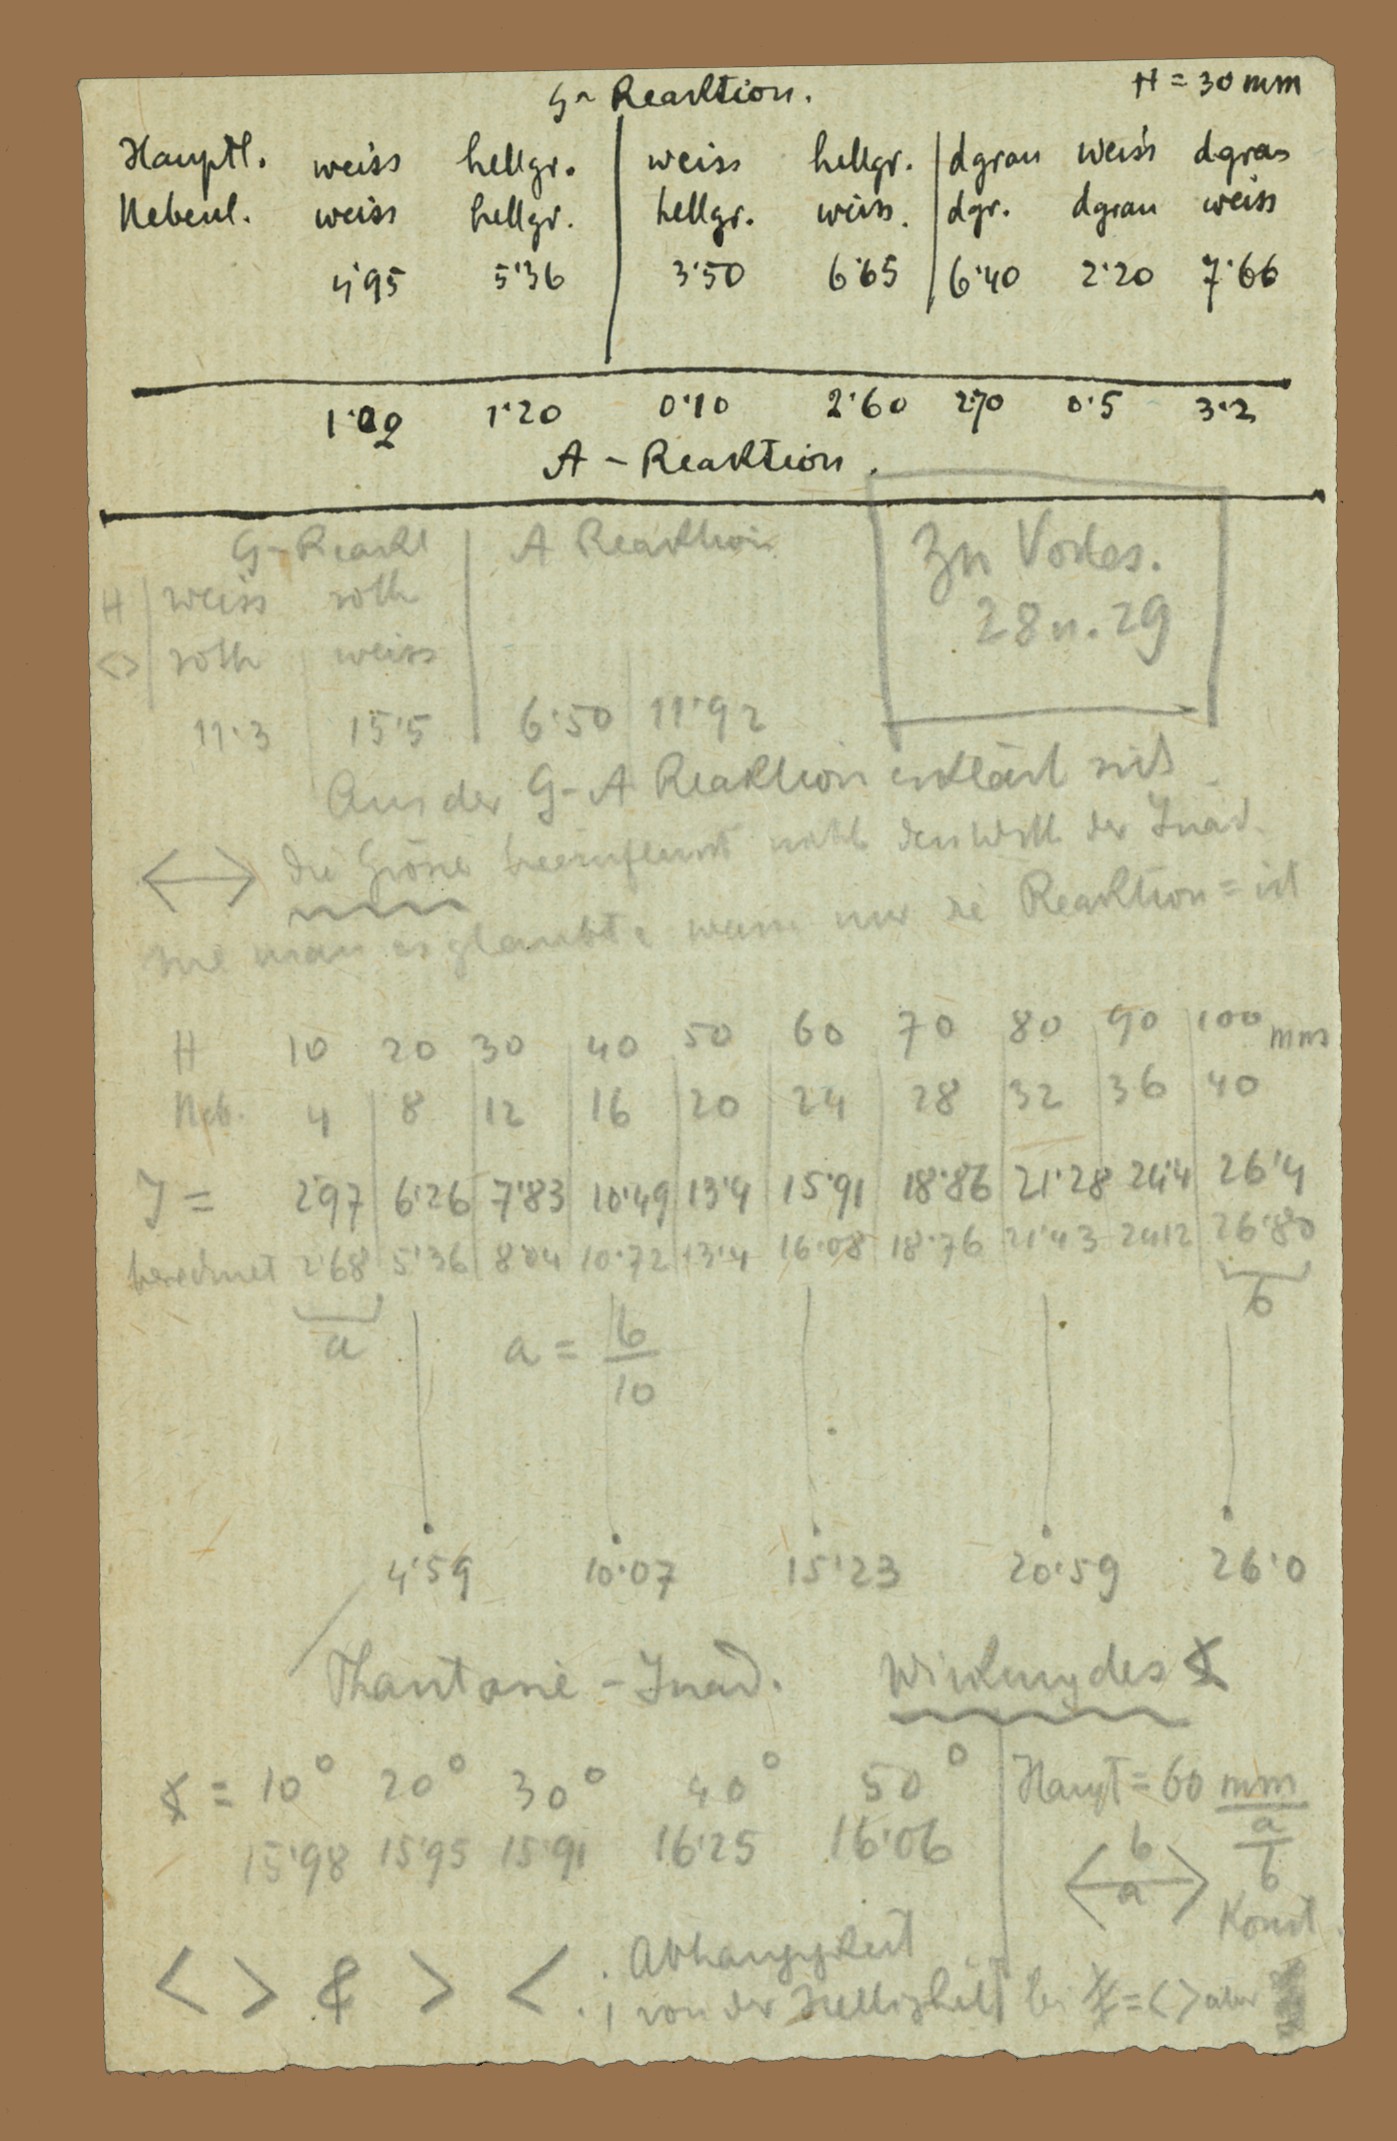 G-Reaktion. H = 30 mm
Hauptl. weiss hellgr. weiss hellgr. dgrau weiss dgrau
Nebenl. weiss hellgr. hellgr. weiss. dgr. dgrau weiss
4·95 5·36 3·50 6·65 6·40 2·20 7·66
1·02 1·20 0·10 2·60 2·70 0·5 3·2
A - Reaktion.
G-Reakt A Reaktion
H weiss roth
<> roth weiss
Zu Vorles.
28 u. 29
11·3 15·5 6·50 11·92
Aus der G-A Reaktion erklärt sich
<—> die Grösse beeinflusst nicht den der Inad.
wie man es glaubte wenn nur die Reaktion = ist
H 10 20 30 40 50 60 70 80 90 100 mm
Neb. 4 8 12 16 20 24 28 32 36 40
J = 2·97 6·26 7·83 10·49 13·4 15·91 18·86 21·28 24·4 26·4
berechnet 2·68 5·36 8·04 10·72 13·4 16·08 18·76 21·43 24·12 26·80
a b
a = b/10
4·59 10·07 15·23 20·59 26·0
Phantasie - Inad. Wirkung des ∢
∢ = 10° 20° 30° 40° 50° Haupt = 60 mm
15·98 15·95 15·91 16·25 16·06
b a a/b
Konst.
< > & > < . Abhängigkeit
von der Helligkeit bei ∢ = < > aber